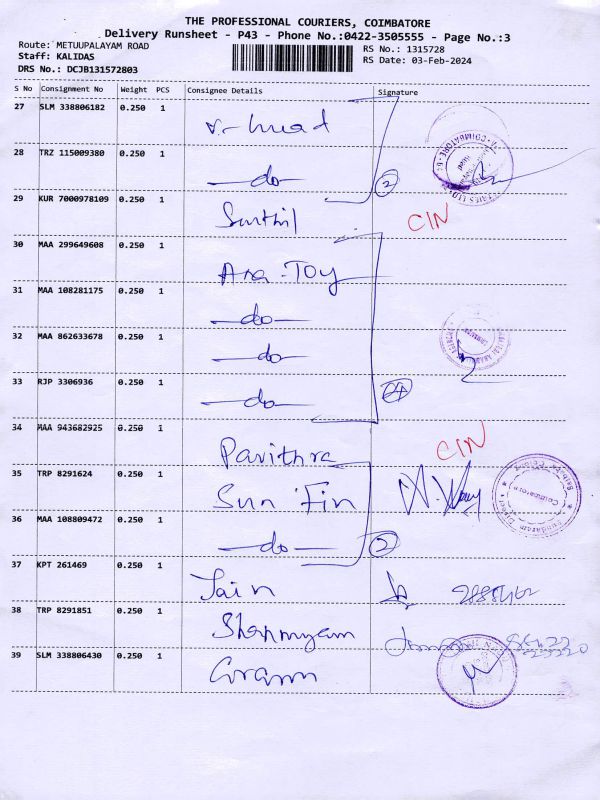 THE PROFESSIONAL COURIERS, COIMBATORE
Delivery Runsheet - P43 - Phone No.:0422-3505555 - Page No.:3
Route: METUUPALAYAM ROAD
RS No.: 1315728
Staff: KALIDAS
RS Date: 03-Feb-2024
DRS No.: DCJB131572803
S No Consignment No Weight PCS Consignee Details Signature
27 SLM 338806182 0.250 1
28 TRZ 115009380 0.250 1 -do- 2
29 KUR 7000978109 0.250 1 CIN
30 MAA 299649608 0.250 1
31 MAA 108281175 0.250 1 -do-
32 MAA 862633678 0.250 1 -do-
33 RJP 3306936 0.250 1 -do-
34 MAA 943682925 0.250 1 Pavithra CIN
35 TRP 8291624 0.250 1 Sun Fin
36 MAA 108809472 0.250 1 -do- 2
37 KPT 261469 0.250 1 Jain
38 TRP 8291851 0.250 1
39 SLM 338806430 0.250 1